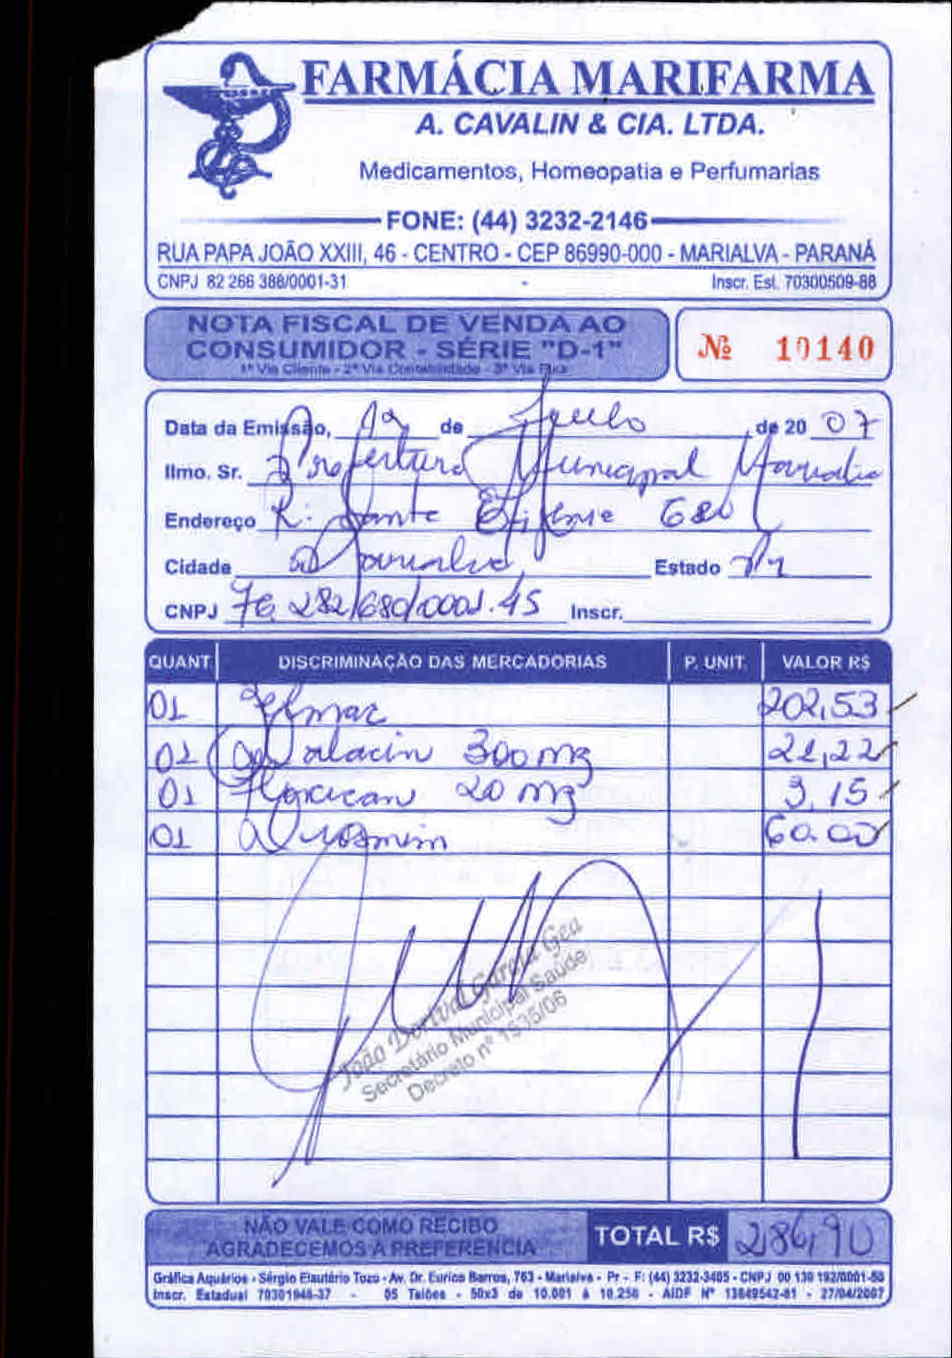 FARMÁCIA MARIFARMA
A. CAVALIN & CIA. LTDA.
Medicamentos, Homeopatia e Perfumarias
FONE: (44) 3232-2146
RUA PAPA JOÃO XXIII, 46 - CENTRO - CEP 86990-000 - MARIALVA - PARANÁ
CNPJ 82 266 388/0001-31 Inscr. Est. 70300509-88
NOTA FISCAL DE VENDA AO
CONSUMIDOR - SÉRIE "D-1"
1ª Via Cliente - 2ª Via Contabilidade - 3ª Via Fixa
Nº 10140
Data da Emissão, de de 20 07
Ilmo. Sr. Prefeitura Municipal Marialva
Endereço R: Santa Efigenia 680
Cidade Marialva Estado Pr
CNPJ 76.282/680/0001.45 Inscr.
QUANT. DISCRIMINAÇÃO DAS MERCADORIAS P. UNIT. VALOR R$
01 202,53
01 Dalacin 300 mg 21,22
01 20 mg 3,15
01 60.00
João Dorival Garcia Gea
Secretário Municipal Saúde
Decreto nº
NÃO VALE COMO RECIBO
AGRADECEMOS A PREFERÊNCIA
TOTAL R$ 286,90
Gráfica Aquários - Sérgio Elautério Tozo - Av. Dr. Eurico Barros, 763 - Marialva - Pr - F: (44) 3232-3405 - CNPJ 00 130 192/0001-50
Inscr. Estadual 70301946-37 - 05 Talões - 50x3 de 10.001 à 10.250 - AIDF Nº 13849542-81 - 27/04/2007